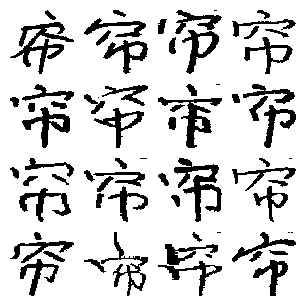 帘帘帘帘
帘帘帘帘
帘帘帘帘
帘帘帘帘